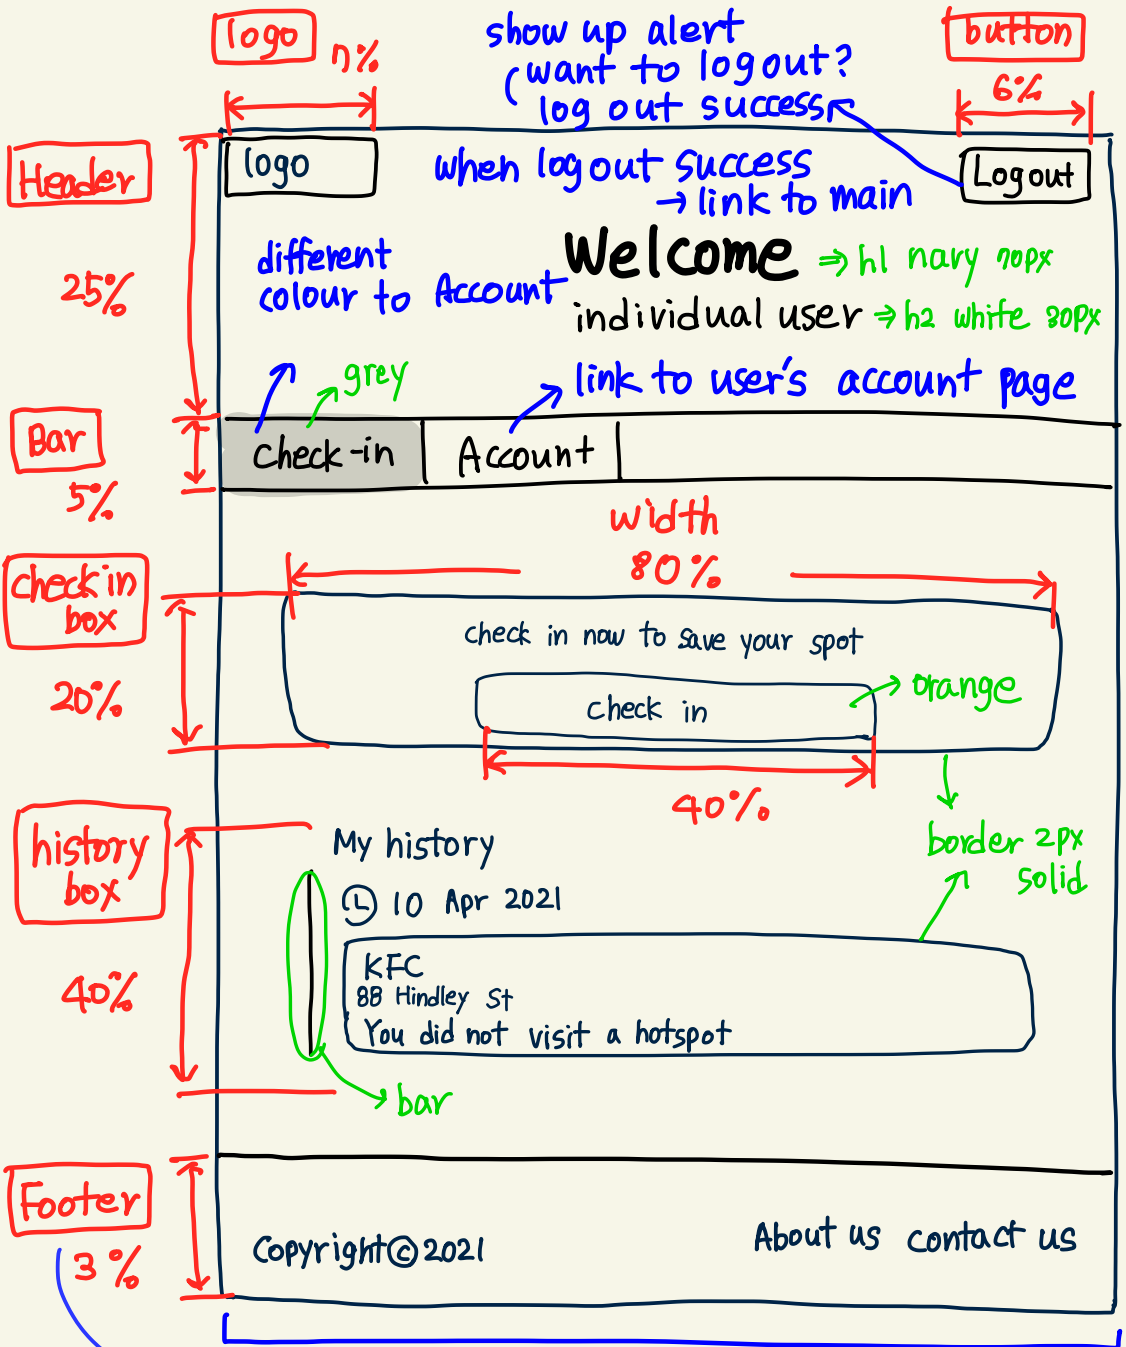 logo
7%
show up alert
(want to logout?
log out success
button
6%
Header
25%
logo
when logout success
→ link to main
Logout
different
colour to Account
Welcome
⇒ h1 navy 70px
individual user
⇒ h2 white 30px
grey
link to user's account page
Bar
5%
Check-in
Account
width
80%
check in
box
20%
check in now to save your spot
check in
orange
40%
border 2px
solid
history
box
40%
My history
10 Apr 2021
KFC
88 Hindley St
You did not visit a hotspot
bar
Footer
3%
Copyright © 2021
About us contact us